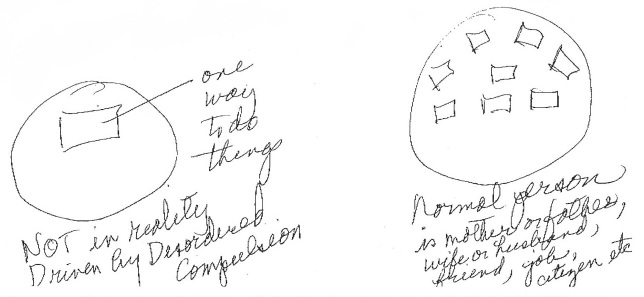 one
way
to do
things
NOT in reality
Driven by Desordered
Compulsion
Normal person
is mother or father,
wife or husband,
friend, job,
citizen etc